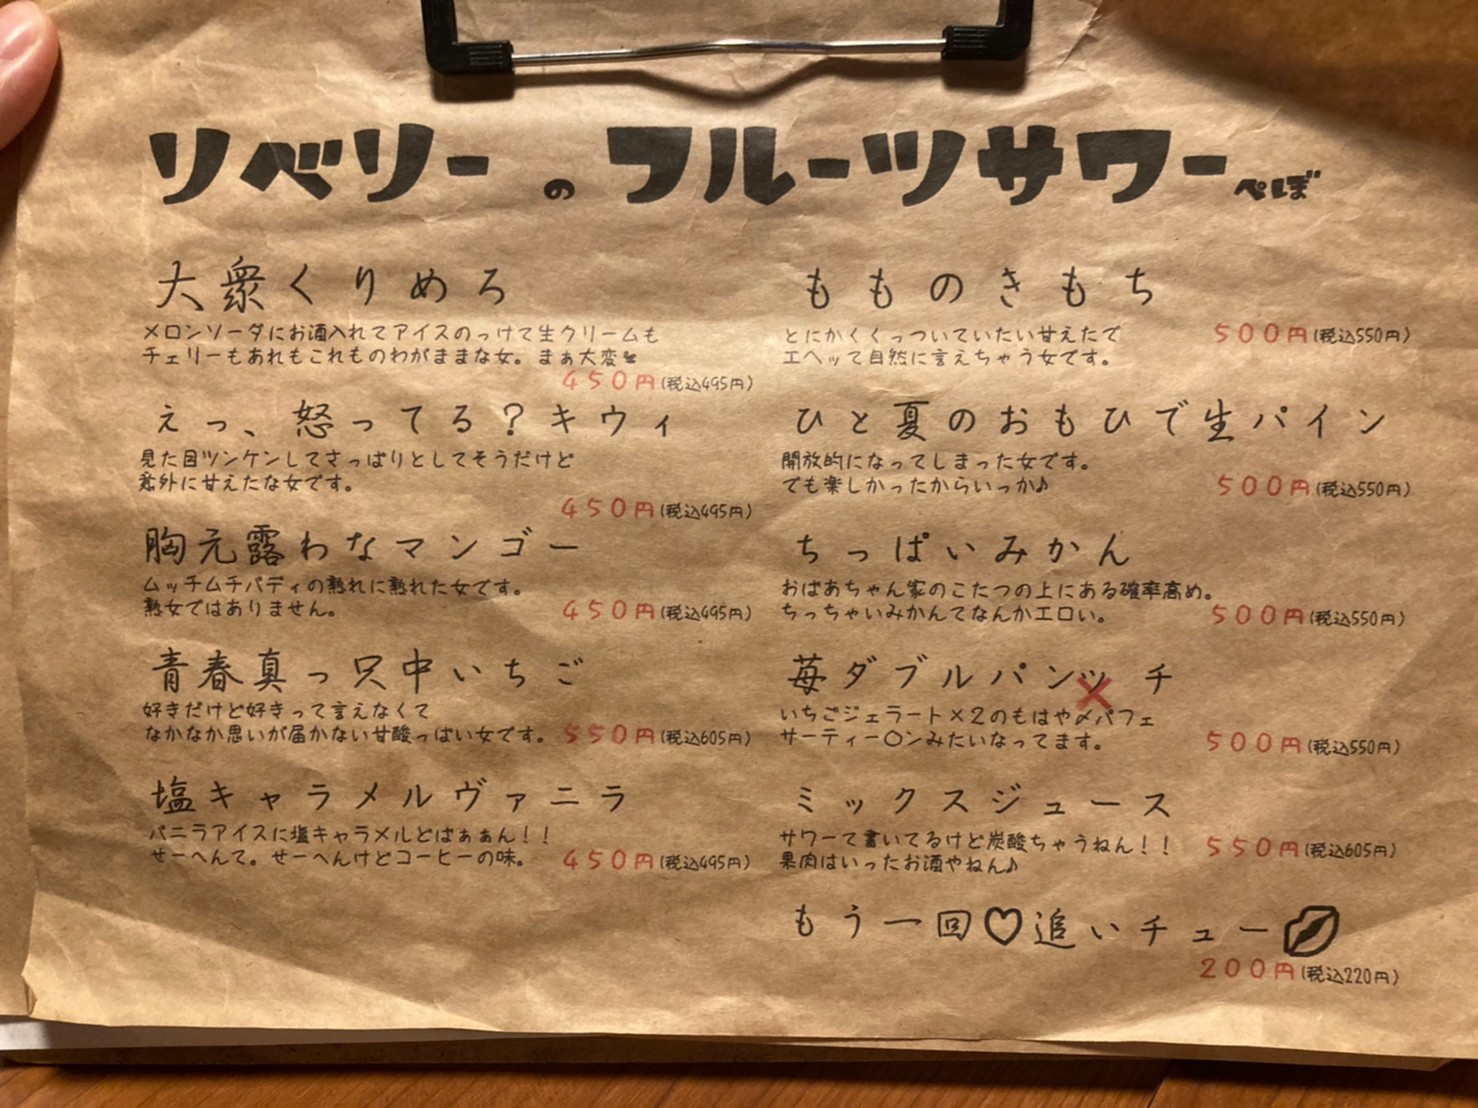 リベリーのフルーツサワーぺぽ
大衆くりめろ
メロンソーダにお酒入れてアイスのっけて生クリームも
チェリーもあれもこれものわがままな女。まぁ大変
450円(税込495円)
えっ、怒ってる?キウィ
見た目ツンケンしてさっぱりとしてそうだけど
意外に甘えたな女です。
450円(税込495円)
胸元露わなマンゴー
ムッチムチバディの熟れに熟れた女です。
熟女ではありません。
450円(税込495円)
青春真っ只中いちご
好きだけど好きって言えなくて
なかなか思いが届かない甘酸っぱい女です。
550円(税込605円)
塩キャラメルヴァニラ
バニラアイスに塩キャラメルどばぁぁん!!
せーへんて。せーへんけどコーヒーの味。
450円(税込495円)
もものきもち
とにかくくっついていたい甘えたで
エヘッて自然に言えちゃう女です。
500円(税込550円)
ひと夏のおもひで生パイン
開放的になってしまった女です。
でも楽しかったからいっか♪
500円(税込550円)
ちっぱいみかん
おばあちゃん家のこたつの上にある確率高め。
ちっちゃいみかんてなんかエロい。
500円(税込550円)
苺ダブルパンッチ
いちごジェラート×2のもはや〆パフェ
サーティー〇ンみたいなってます。
500円(税込550円)
ミックスジュース
サワーて書いてるけど炭酸ちゃうねん!!
果肉はいったお酒やねん♪
550円(税込605円)
もう一回♡追いチュー
200円(税込220円)